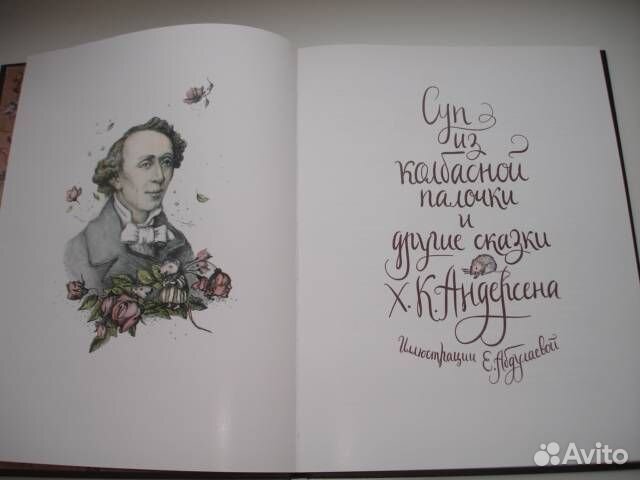 Суп
из
колбасной
палочки
и
другие сказки
Х. К. Андерсена
Иллюстрации Е. Абдулаевой
Avito